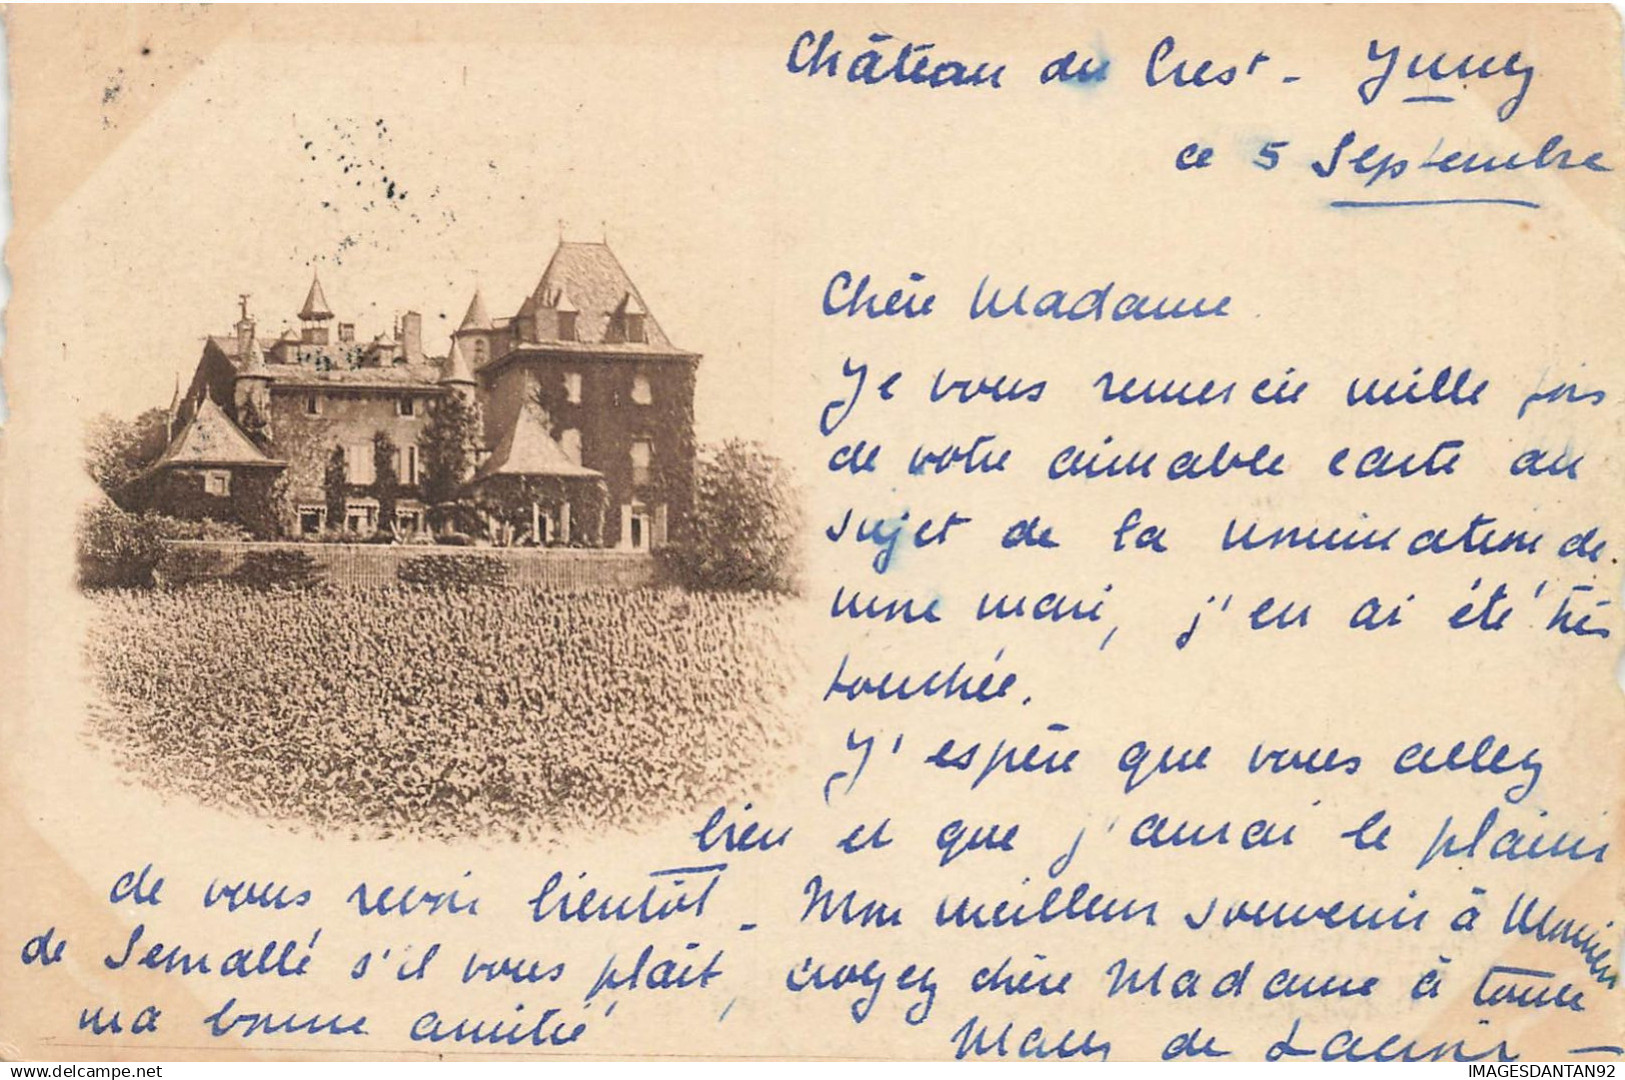 Château du Crest - Jussy
ce 5 Septembre
Chère Madame
Je vous remercie mille fois
de votre aimable carte au
sujet de la nomination de
mon mari, j'en ai été très
touchée.
J'espère que vous allez
bien et que j'aurai le plaisir
de vous revoir bientôt - Mon meilleur souvenir à Monsieur
de Semallé s'il vous plaît, croyez chère Madame à toute
ma bonne amitié
de
IMAGESDANTAN92